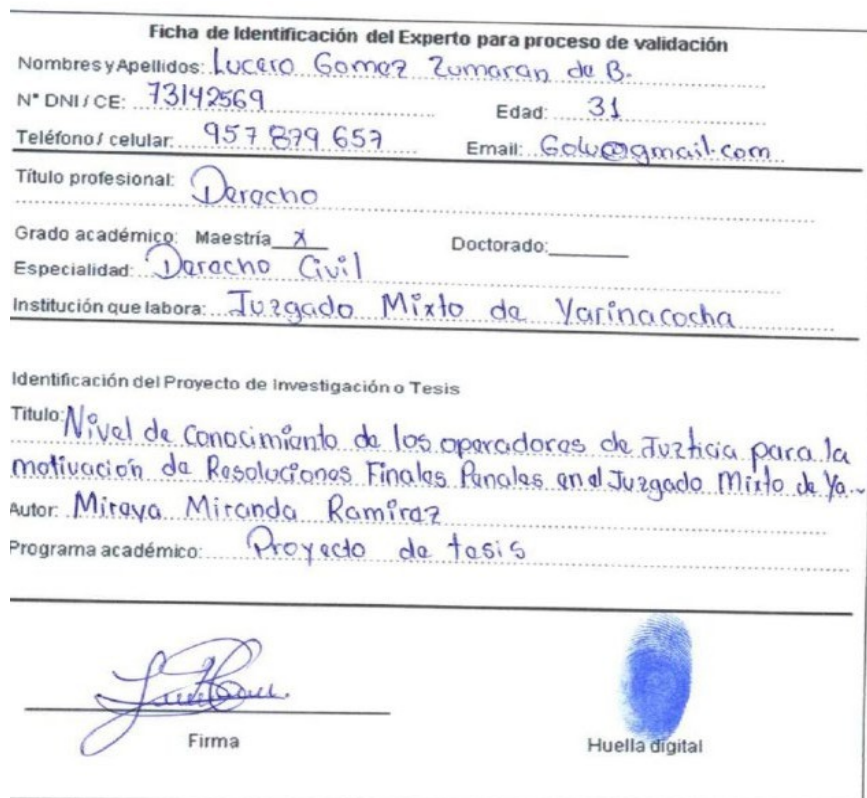 Ficha de Identificación del Experto para proceso de validación
Nombres y Apellidos: Lucero Gomez Zumaran de B.
N° DNI / CE: 73142569 Edad: 31
Teléfono / celular: 957 879 657 Email: Golu@gmail.com
Título profesional: Derecho
Grado académico: Maestría X Doctorado:
Especialidad: Derecho Civil
Institución que labora: Juzgado Mixto de Yarinacocha
Identificación del Proyecto de Investigación o Tesis
Titulo: Nivel de Conocimiento de los operadores de Juzticia para la
motivación de Resoluciones Finales Penales en el Juzgado Mixto de Ya..
Autor: Mireya Miranda Ramirez
Programa académico: Proyecto de tesis
Firma Huella digital